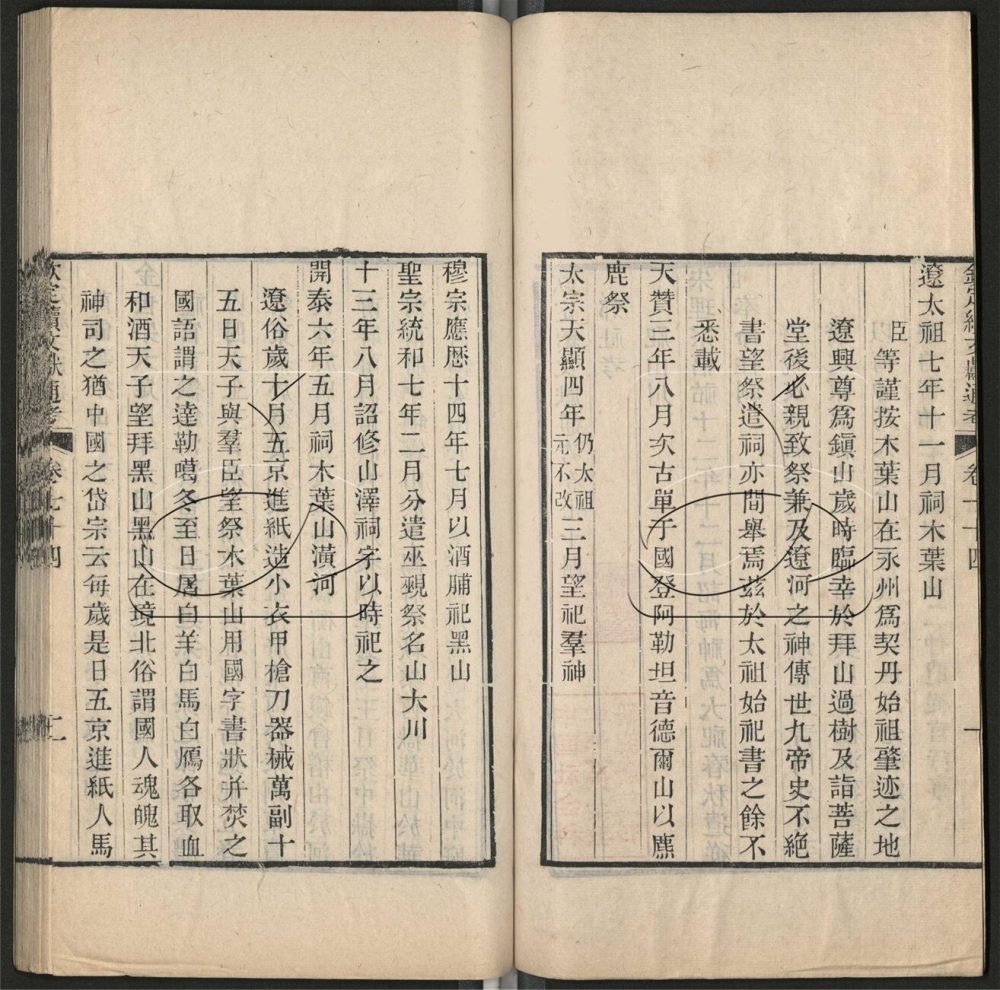 遼太祖七年十一月祠木葉山
臣等謹按木葉山在永州爲契丹始祖肇迹之地
遼興尊爲鎭山歲時臨幸於拜山過樹及詣菩薩
堂後必親致祭兼及遼河之神傳世九帝史不絶
書望祭遣祠亦間舉焉茲於太祖始祀書之餘不
悉載
天贊三年八月次古單于國登阿勒坦音德爾山以麃
鹿祭
太宗天顯四年仍太祖元不改三月望祀羣神
穆宗應歷十四年七月以酒脯祀黑山
聖宗統和七年二月分遣巫覡祭名山大川
十三年八月詔修山澤祠宇以時祀之
開泰六年五月祠木葉山潢河
遼俗歲十月五京進紙造小衣甲槍刀器械萬副十
五日天子與羣臣望祭木葉山用國字書狀并焚之
國語謂之達勒噶冬至日屠白羊白馬白鴈各取血
和酒天子望拜黑山黑山在境北俗謂國人魂魄其
神司之猶中國之岱宗云每歲是日五京進紙人馬
欽定續文獻通考 卷七十四 二